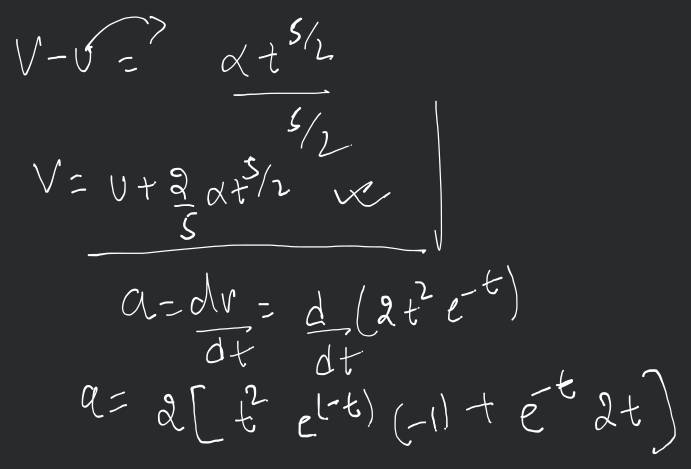 V-u = αt^5/2 / 5/2
V = u + 2/5 αt^5/2
a = dv/dt = d/dt (2t² e^-t)
a = 2[t² e^(-t) (-1) + e^-t 2t]